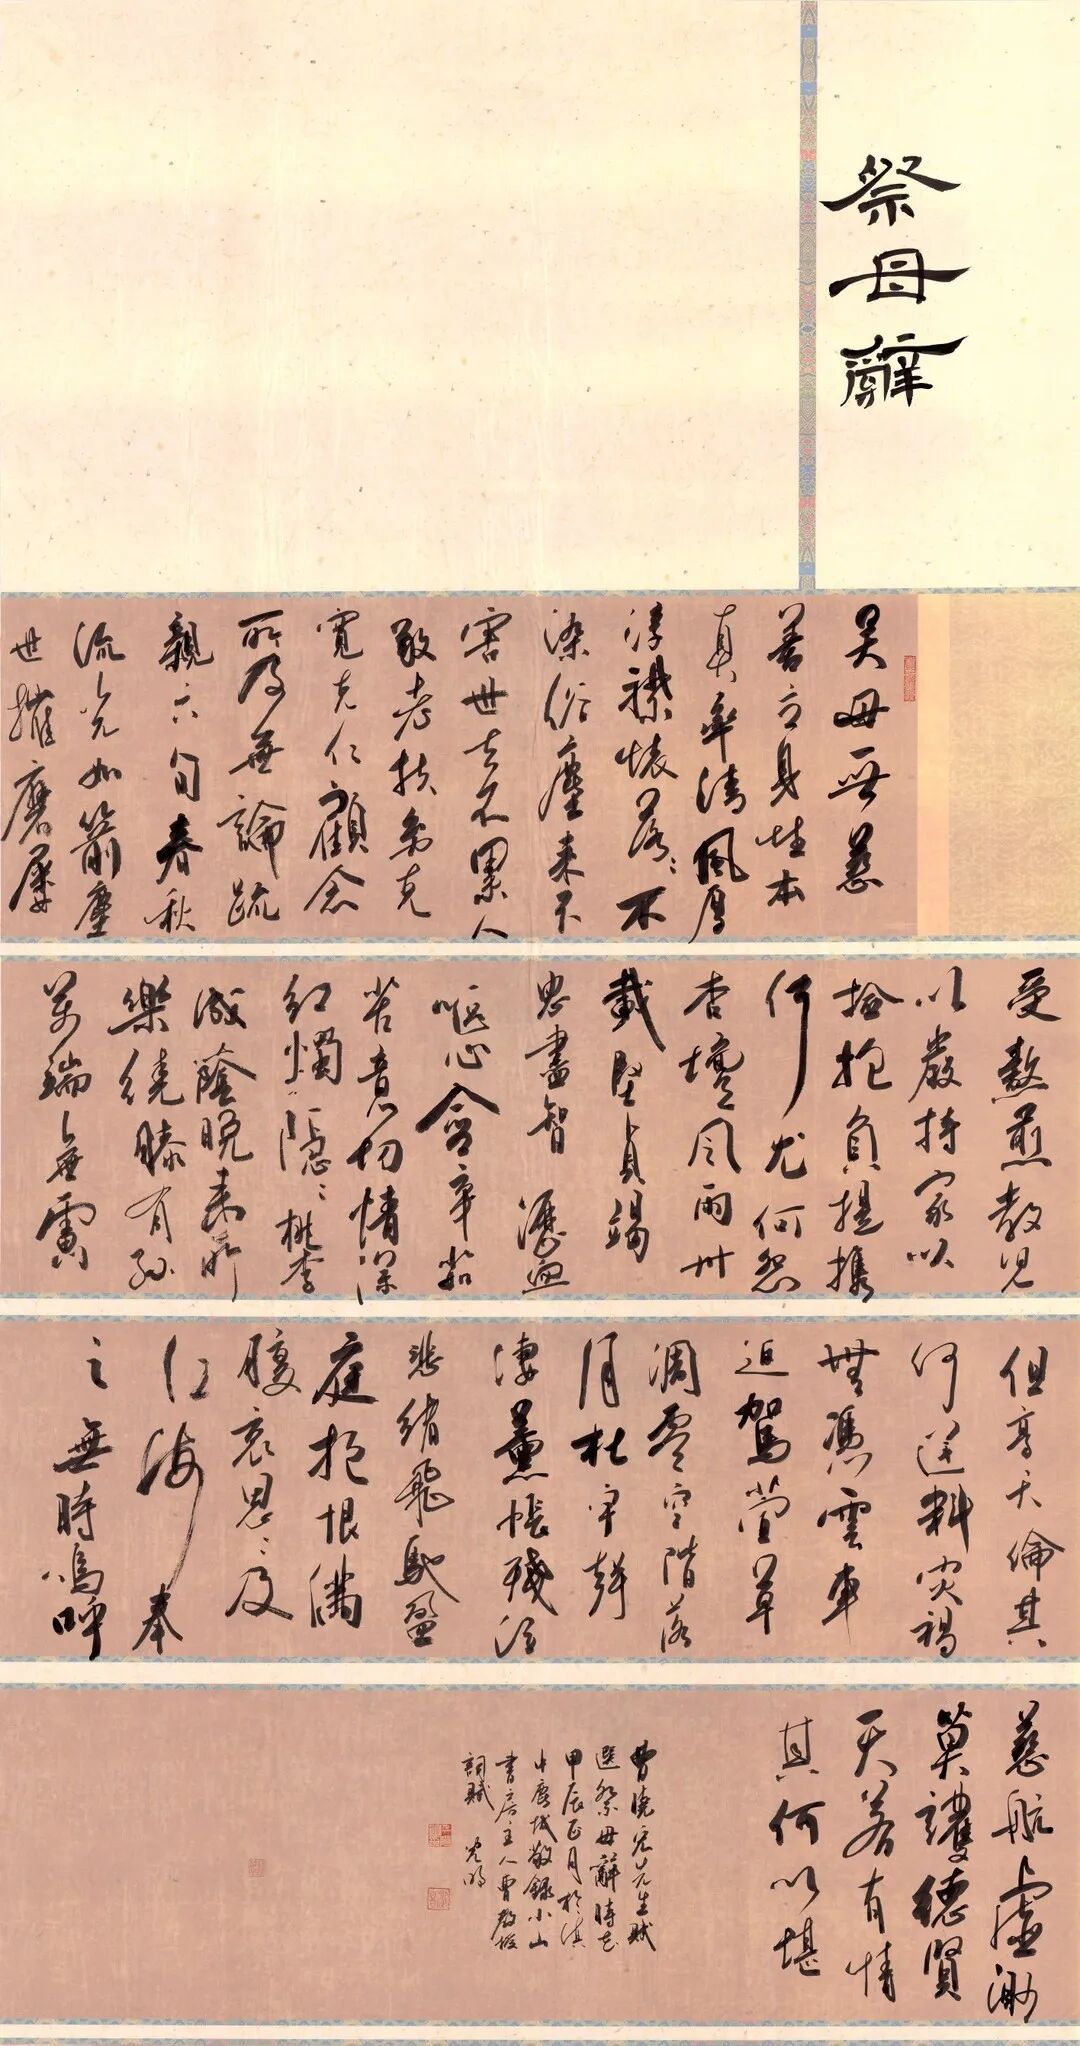 祭母辭
吴母無慈
善立身性本
真率清風厚
淳襟懷落〻不
染俗塵来不
害世去不累人
敬老扶弱克
寬克仁顧念
所及無論疏
親六旬春秋
流光如箭塵
世摧磨屡
受熬煎教児
以嚴持家以
撿抱負提攜
何尤何怨
杏壇風雨卅
載堅貞竭
思盡智瀝血
嘔心含辛茹
苦意切情深
紅燭隱〻桃李
成蔭晚来昕
樂繞膝有孫
万端無虞
但享天倫其
何遽料灾禍
無憑雲車
迫駕萱草
凋零空階落
月杜宇聲
凄蕙帳殘泣
悲緒飛馳盈
庭抱恨滿
腹哀思〻及
仁海奉
之無時嗚呼
慈航虚渺
莫護德賢
天若有情
其何以堪
曹曉宏先生賦
選祭母辭時在
甲辰正月於滇
中鹿城敬錄小山
書房主人曹
詞賦